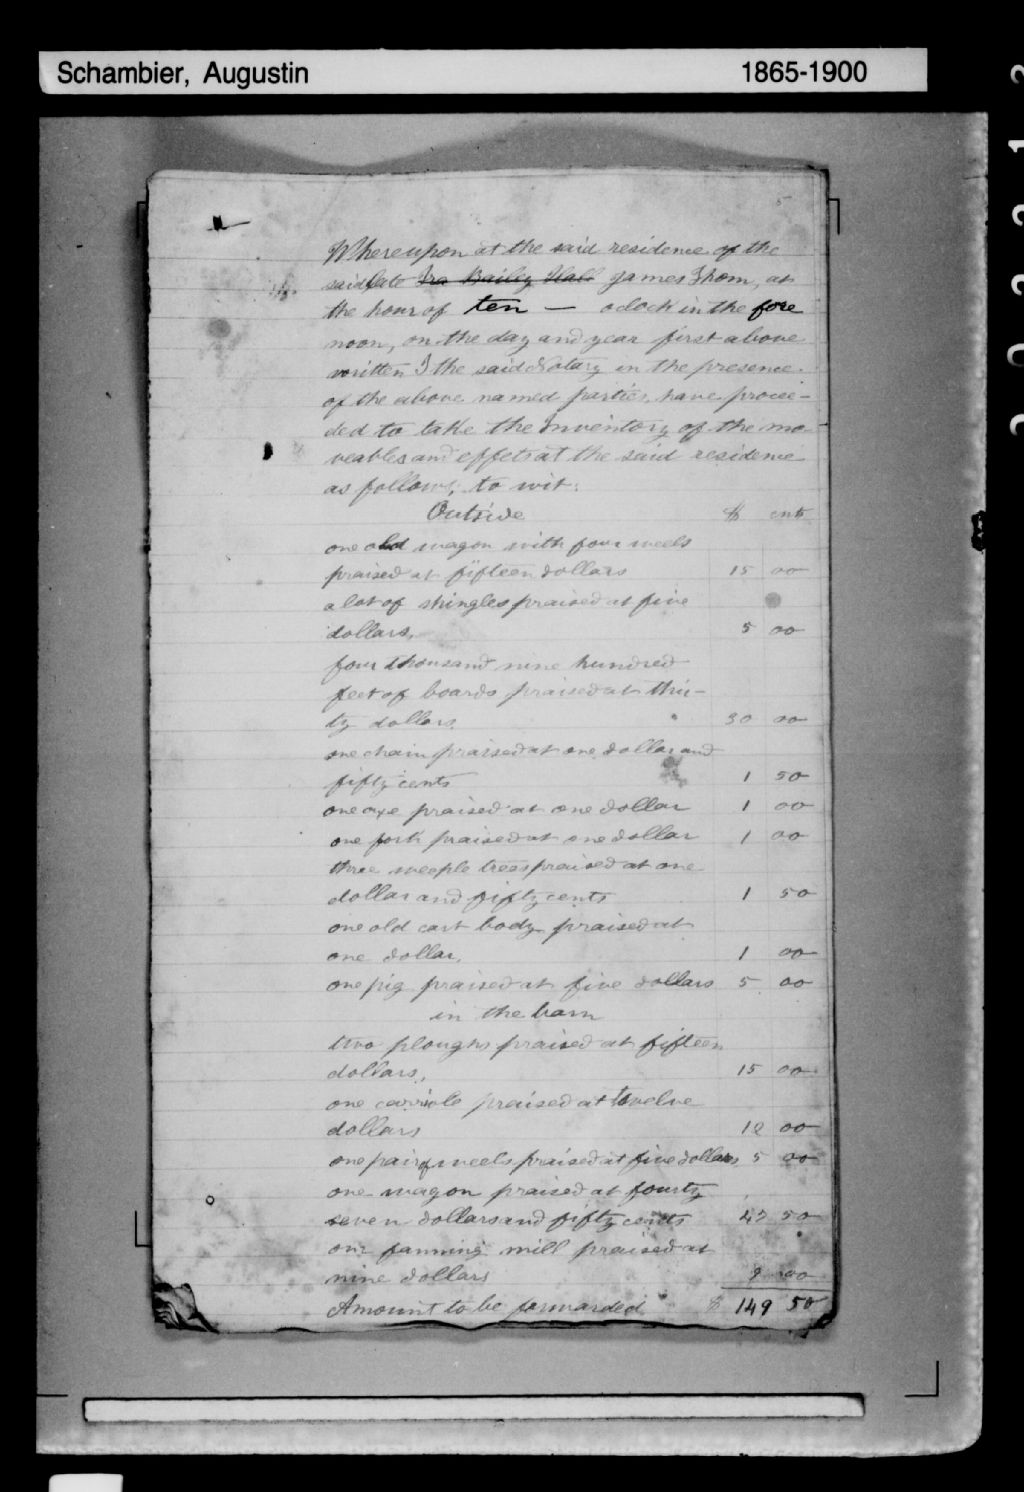 Schambier, Augustin 1865-1900
5
Whereupon at the said residence of the
said late Ira Bailey Hall James Thom, at
the hour of ten — oclock in the fore
noon, on the day and year first above
written I the said Notary in the presence
of the above named parties, have procee-
ded to take the Inventory of the mo
veables and effets at the said residence
as follows, to wit:
Outside $ cnts
one old wagon with four weels
praised at fifteen dollars 15 00
a lot of shingles praised at five
dollars, 5 00
four thousand nine hundred
feet of boards praised at thir-
ty dollars 30 00
one chain praised at one dollar and
fifty cents 1 50
one axe praised at one dollar 1 00
one fork praised at one dollar 1 00
three weeple trees praised at one
dollar and fifty cents 1 50
one old cart body praised at
one dollar, 1 00
one pig praised at five dollars 5 00
in the barn
two ploughs praised at fifteen
dollars, 15 00
one carriole praised at twelve
dollars 12 00
one pair of weels praised at five dollars 5 00
one wagon praised at fourty
seven dollars and fifty cents 47 50
one fanning mill praised at
nine dollars 9 00
Amount to be forwarded $ 149 50